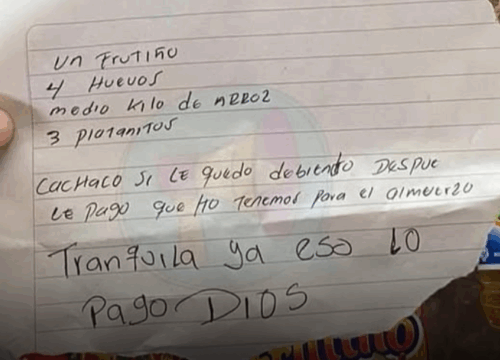 Un FRUTIÑO
4 HUEVOS
medio kilo de ARROZ
3 platanitos
CACHACO Si LE quedo debiendo DESPUE
LE Pago que no Tenemos Para el almuerzo
Tranquila ya eso lo
Pago DIOS